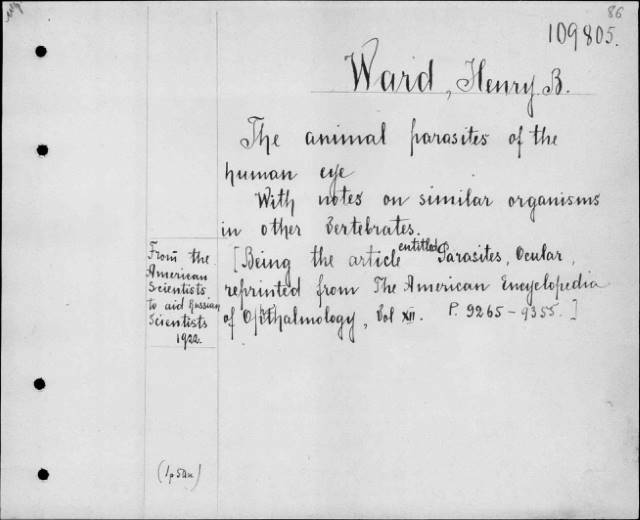 86
109805.
Ward, Henry B.
The animal parasites of the
human eye
With notes on similar organisms
in other Vertebrates.
[Being the article entitled Parasites, Ocular,
reprinted from The American Encyclopedia
of Ophthalmology, Vol XII. P. 9265-9355.]
From the
American
Scientists
to aid Russian
Scientists
1922.